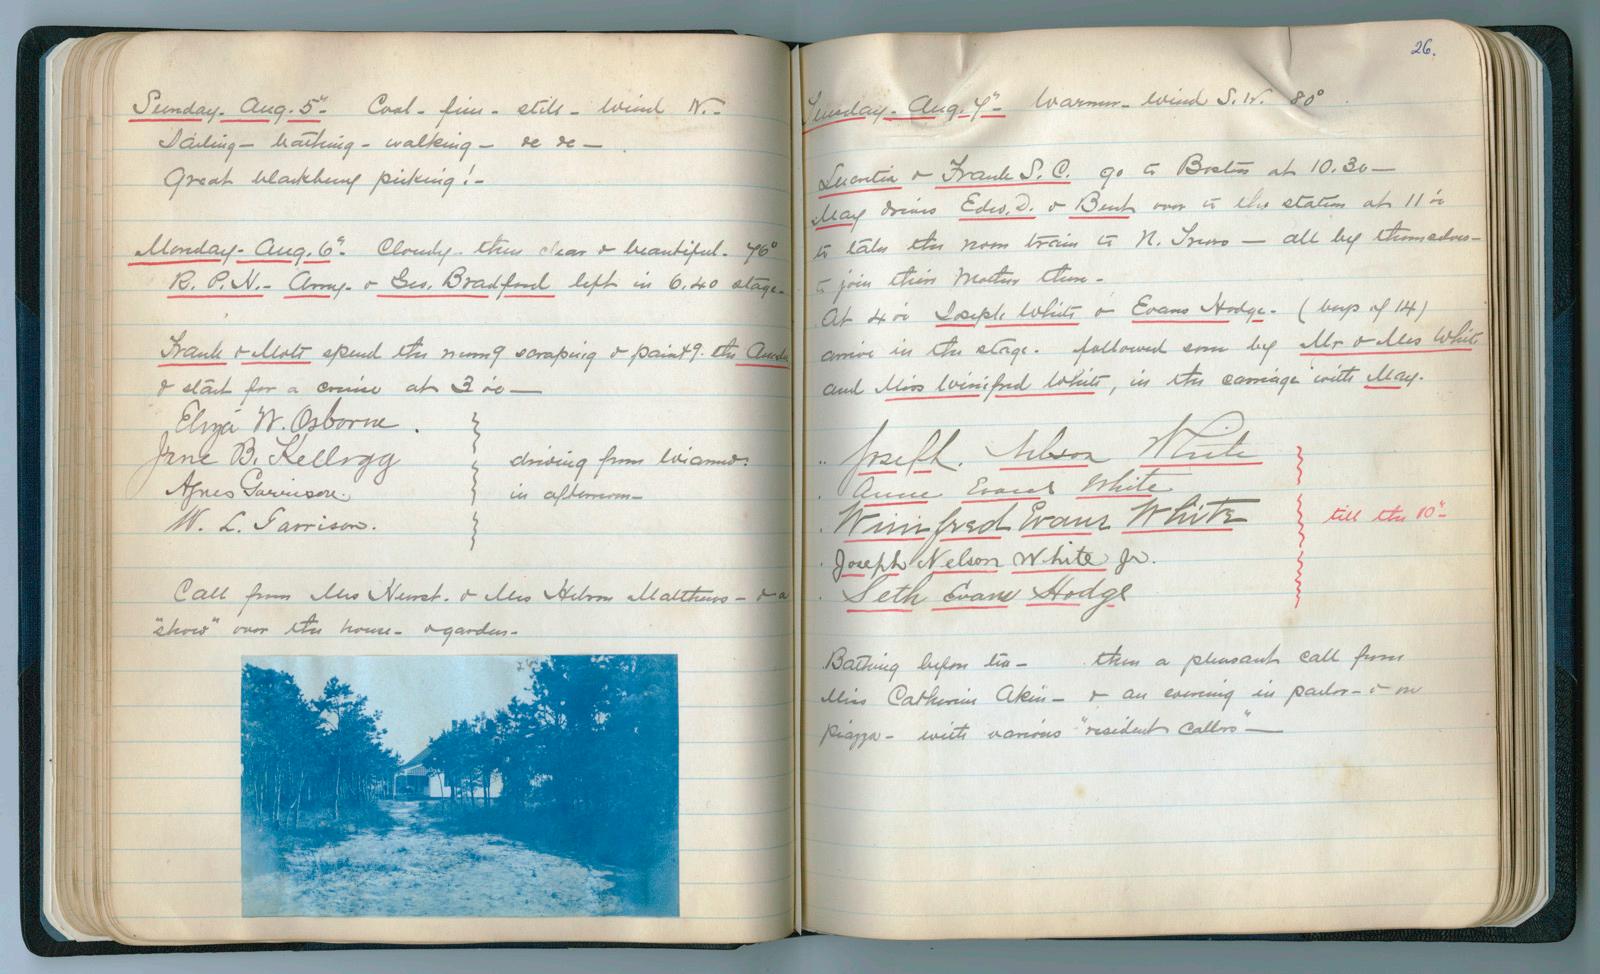 Sunday. Aug. 5" Cool - fine - still - wind N. -
Sailing - bathing - walking - &c &c -
Great blackberry picking! -
Monday - Aug. 6" Cloudy - then clear & beautiful. 76°
R. P. H. - Amy - & Geo. Bradford left in 6.40 stage -
Frank & Mott spend the morn'g scraping & paint'g. the
& start for a cruise at 3 -
Eliza W. Osborne.
Jane B. Kellogg
Agnes Garrison.
W. L. Garrison.
driving from Wianno.
in afternoon -
Call from Mrs Hurst. & Mrs Matthews - & a
"show" over the house - & garden -
26.
Tuesday - Aug. 7" Warmer - wind S. W. 80°
Lucretia & Frank S. C. go to Boston at 10.30 -
May drives Edw. D. & Bent over to the station at 11
to take the noon train to N. Truro - all by themselves -
to join their Mother there -
At 4 Joseph White & Evans Hodge. (boys of 14)
arrive in the stage. followed soon by Mr & Mrs White
and Miss Winifred White, in the carriage with May.
Joseph Nelson White
Anne Evans White
Winifred Evans White
Joseph Nelson White Jr.
Seth Evans Hodge
till the 10"-
Bathing before tea - then a pleasant call from
Miss Catherine Akin - & an evening in parlor - & on
piazza - with various "resident callers" -